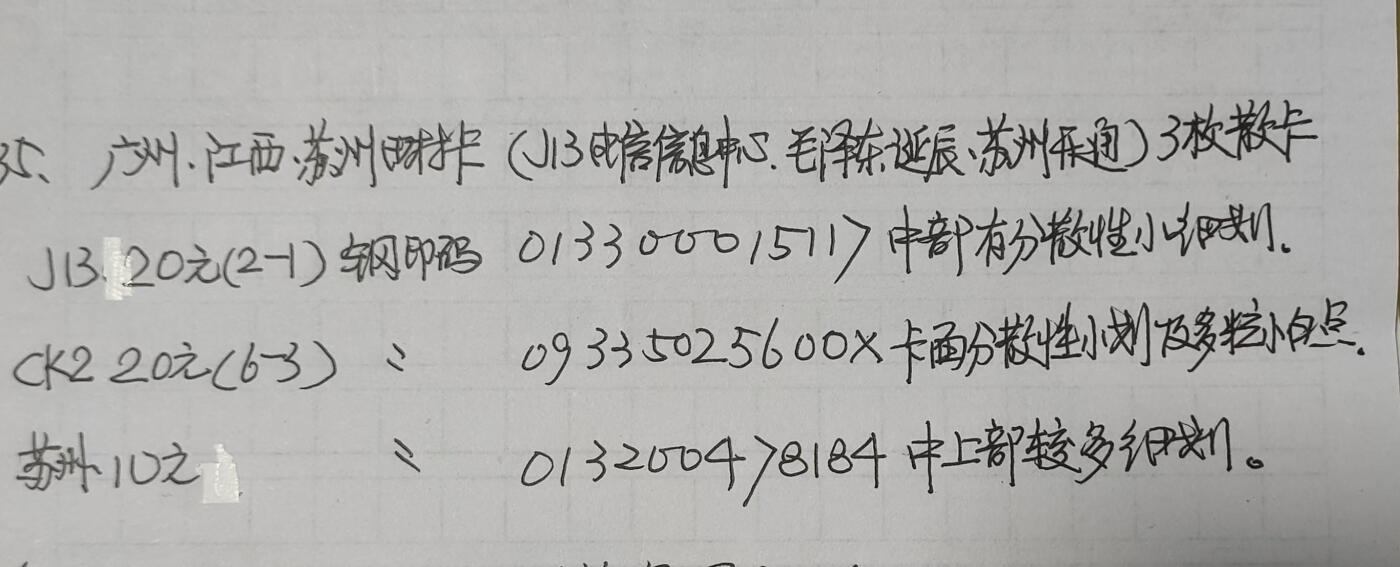 35、广州.江西.苏州田村卡(J13电信信息中心.毛泽东诞辰、苏州开通)3枚散卡
J13 20元(2-1)钢印码 013300015117中部有分散性小细划.
CK2 20元(6-3) 〃 09335025600X卡面分散性小划及多粒小白点.
苏州10元 〃 013200478184中上部较多细划。